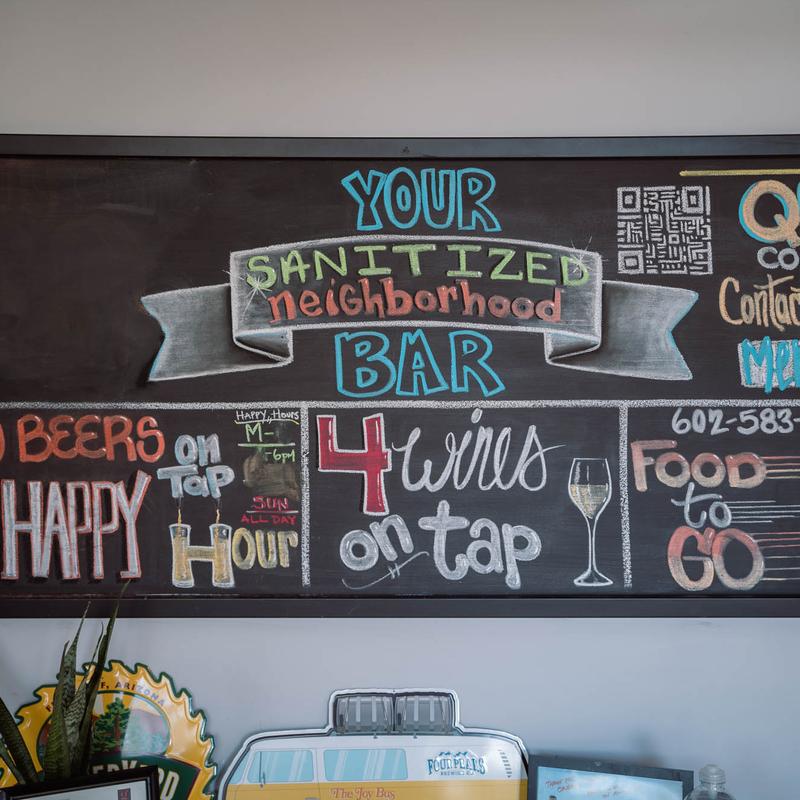 YOUR
SANITIZED
neighborhood
BAR
BEERS
on
Tap
HAPPY
Hour
HAPPY, Hours
M-
-6pm
SUN
ALL DAY
4 wines
on tap
602-583-
FOOD
to
GO
F, ARIZONA
FOUR PEAKS
BREWING CO
The Joy Bus